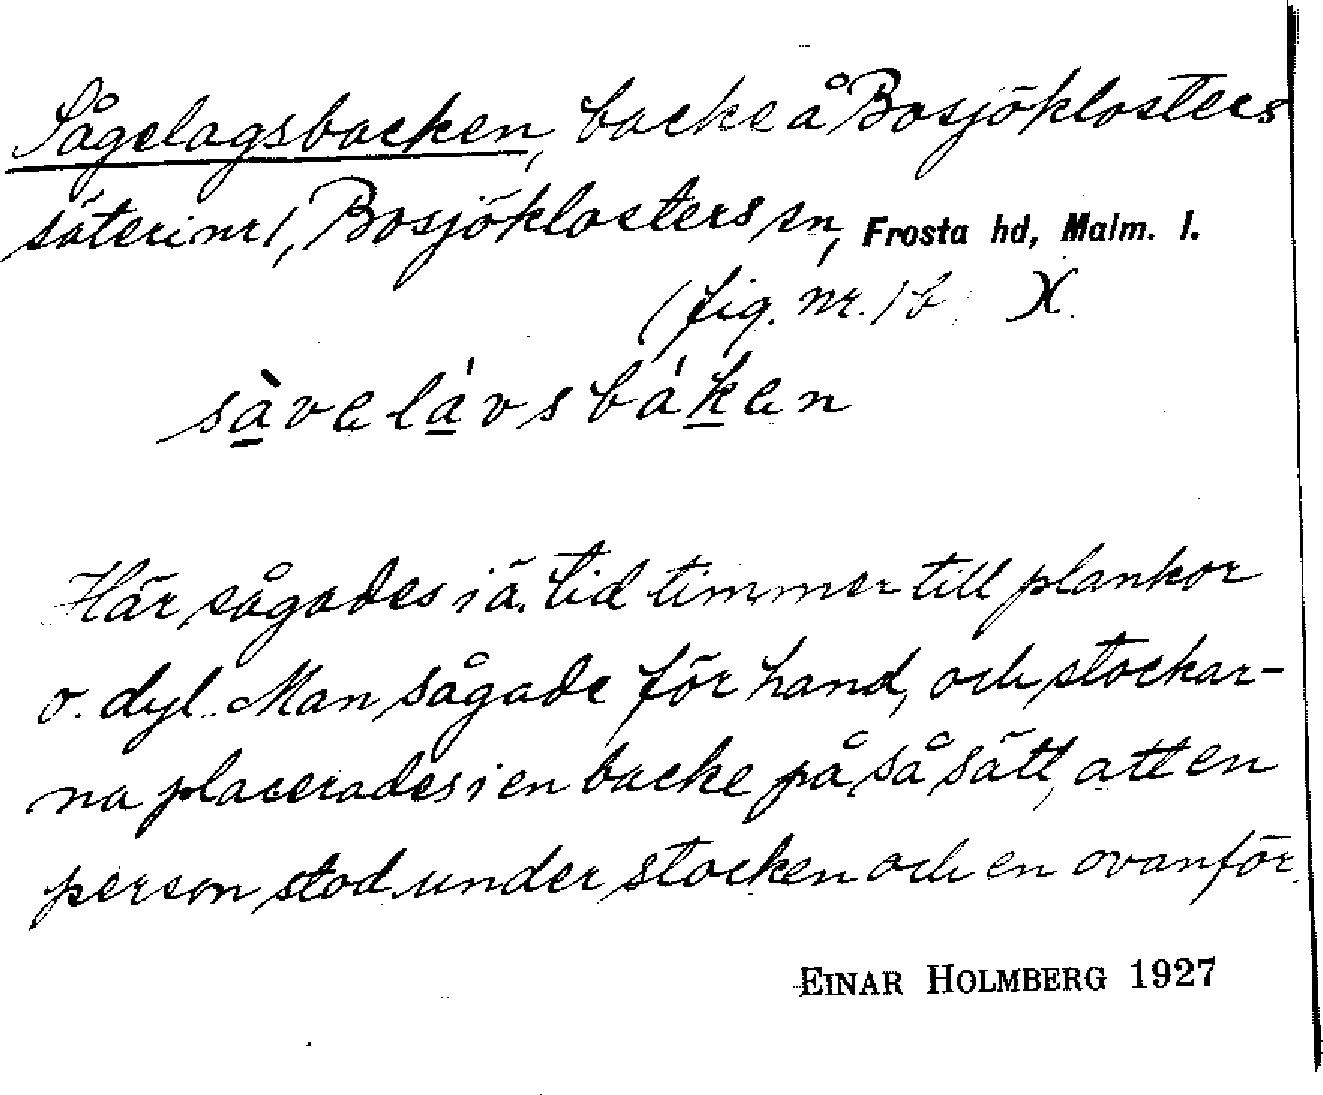 Sågelagsbacken, backe å Bosjöklosters
säteri nr 1, Bosjöklosters sn, Frosta hd, Malm. l.
(fig. nr. 1 b X.
sàvelávsbáken
Här sågades i ä. tid timmer till plankor
o. dyl. Man sågade för hand, och stockar-
na placerades i en backe på så sätt, att en
person stod under stocken och en ovanför.
EINAR HOLMBERG 1927